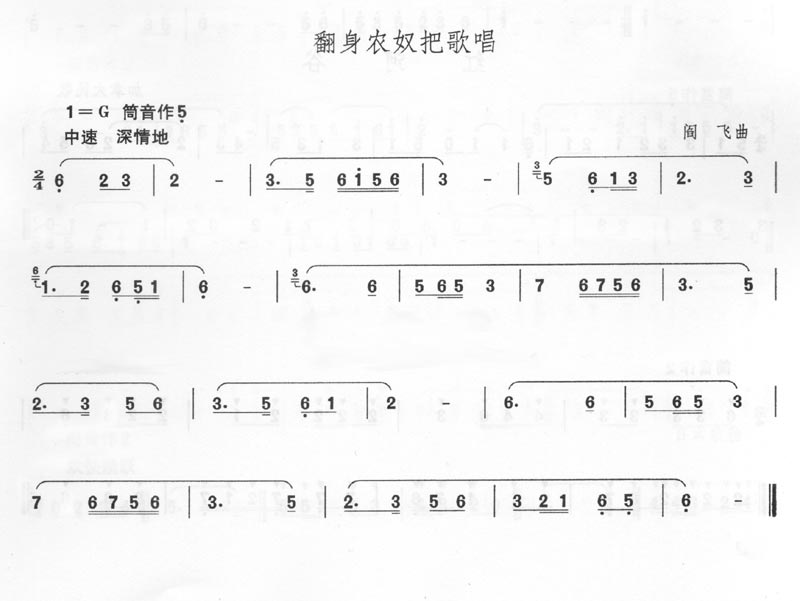 翻身农奴把歌唱
1=G 筒音作5̣
中速 深情地
阎 飞曲
2/4 6̣ 2 3 | 2 - | 3. 5 6 i 5 6 | 3 - | 3 5 6̣ 1 3 | 2. 3 |
6 1. 2 6̣ 5̣ 1 | 6̣ - | 3 6. 6 | 5 6 5 3 | 7 6 7 5 6 | 3. 5 |
2. 3 5 6 | 3. 5 6̣ 1 | 2 - | 6. 6 | 5 6 5 3 |
7 6 7 5 6 | 3. 5 | 2. 3 5 6 | 3 2 1 6̣ 5̣ | 6̣ - ‖